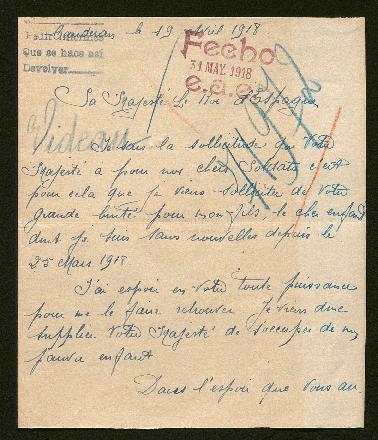 Cauderan le 19 Avril 1918
Pedir informes
Que se hace así
Devolver
Fecho
31 MAY. 1918
Sa Majesté Le Roi d'Espagne
Videau
Je sais la sollicitude que Votre
Majesté a pour nos chers Soldats c'est
pour cela que je viens solliciter de Votre
grande bonté pour mon fils, le cher enfant
dont je suis sans nouvelles depuis le
25 Mars 1918
J'ai espoir en Votre toute puissance
pour me le faire retrouver Je viens donc
supplier Votre Majesté de s'occuper de mon
pauvre enfant
Dans l'espoir que Vous au